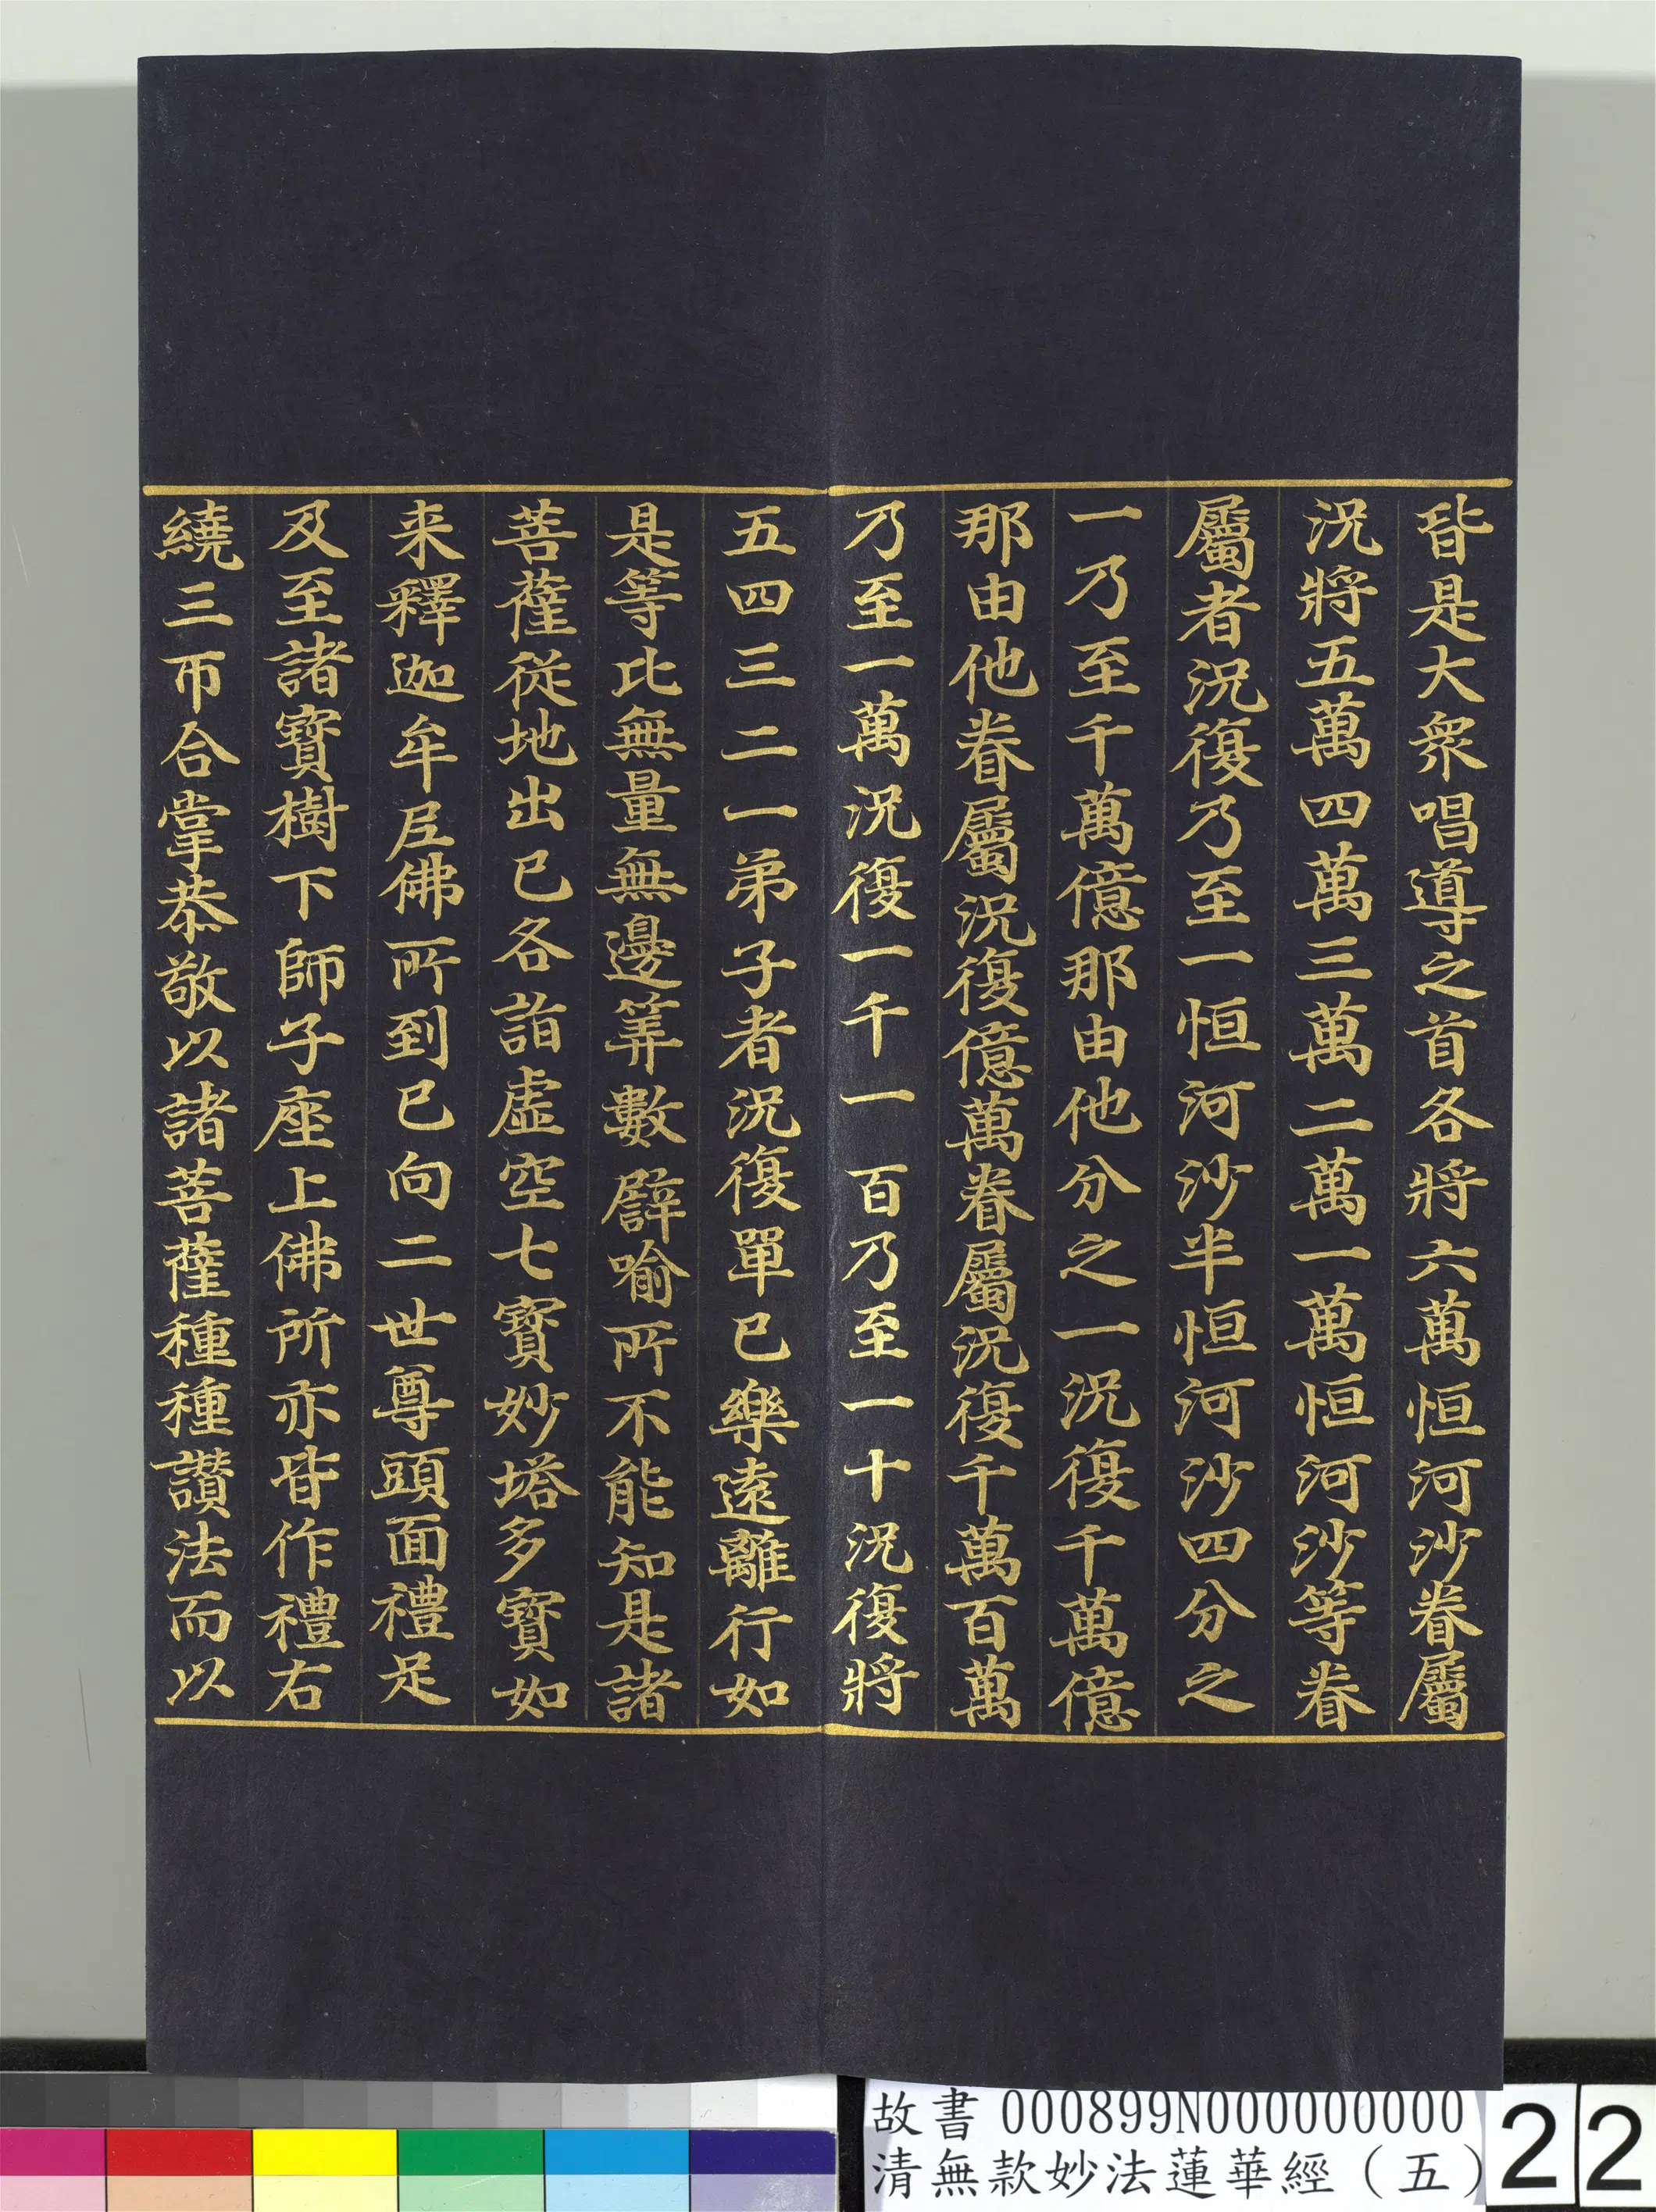 皆是大衆唱導之首各將六萬恒河沙眷屬
況將五萬四萬三萬二萬一萬恒河沙等眷
屬者況復乃至一恒河沙半恒河沙四分之
一乃至千萬億那由他分之一況復千萬億
那由他眷屬況復億萬眷屬況復千萬百萬
乃至一萬況復一千一百乃至一十況復將
五四三二一弟子者況復單已樂遠離行如
是等比無量無邊筭數譬喻所不能知是諸
菩薩從地出已各詣虛空七寶妙塔多寶如
来釋迦牟尼佛所到已向二世尊頭面禮足
及至諸寶樹下師子座上佛所亦皆作禮右
繞三帀合掌恭敬以諸菩薩種種讚法而以
故書 000899N000000000
清無款妙法蓮華經（五）
22